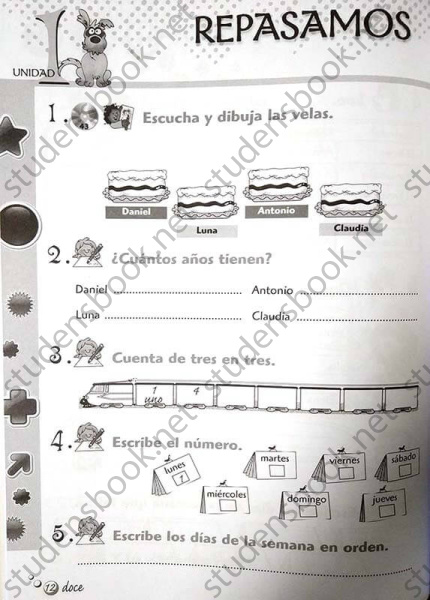 REPASAMOS
1
UNIDAD
1. Escucha y dibuja las velas.
43
Daniel
Luna
Antonio
Claudia
2. ¿Cuántos años tienen?
Daniel
Antonio
Luna
Claudia
3. Cuenta de tres en tres.
1 4
uno
4. Escribe el número.
lunes
1
martes
viernes
sábado
miércoles
domingo
jueves
5. Escribe los días de la semana en orden.
12 doce
studensbook.net